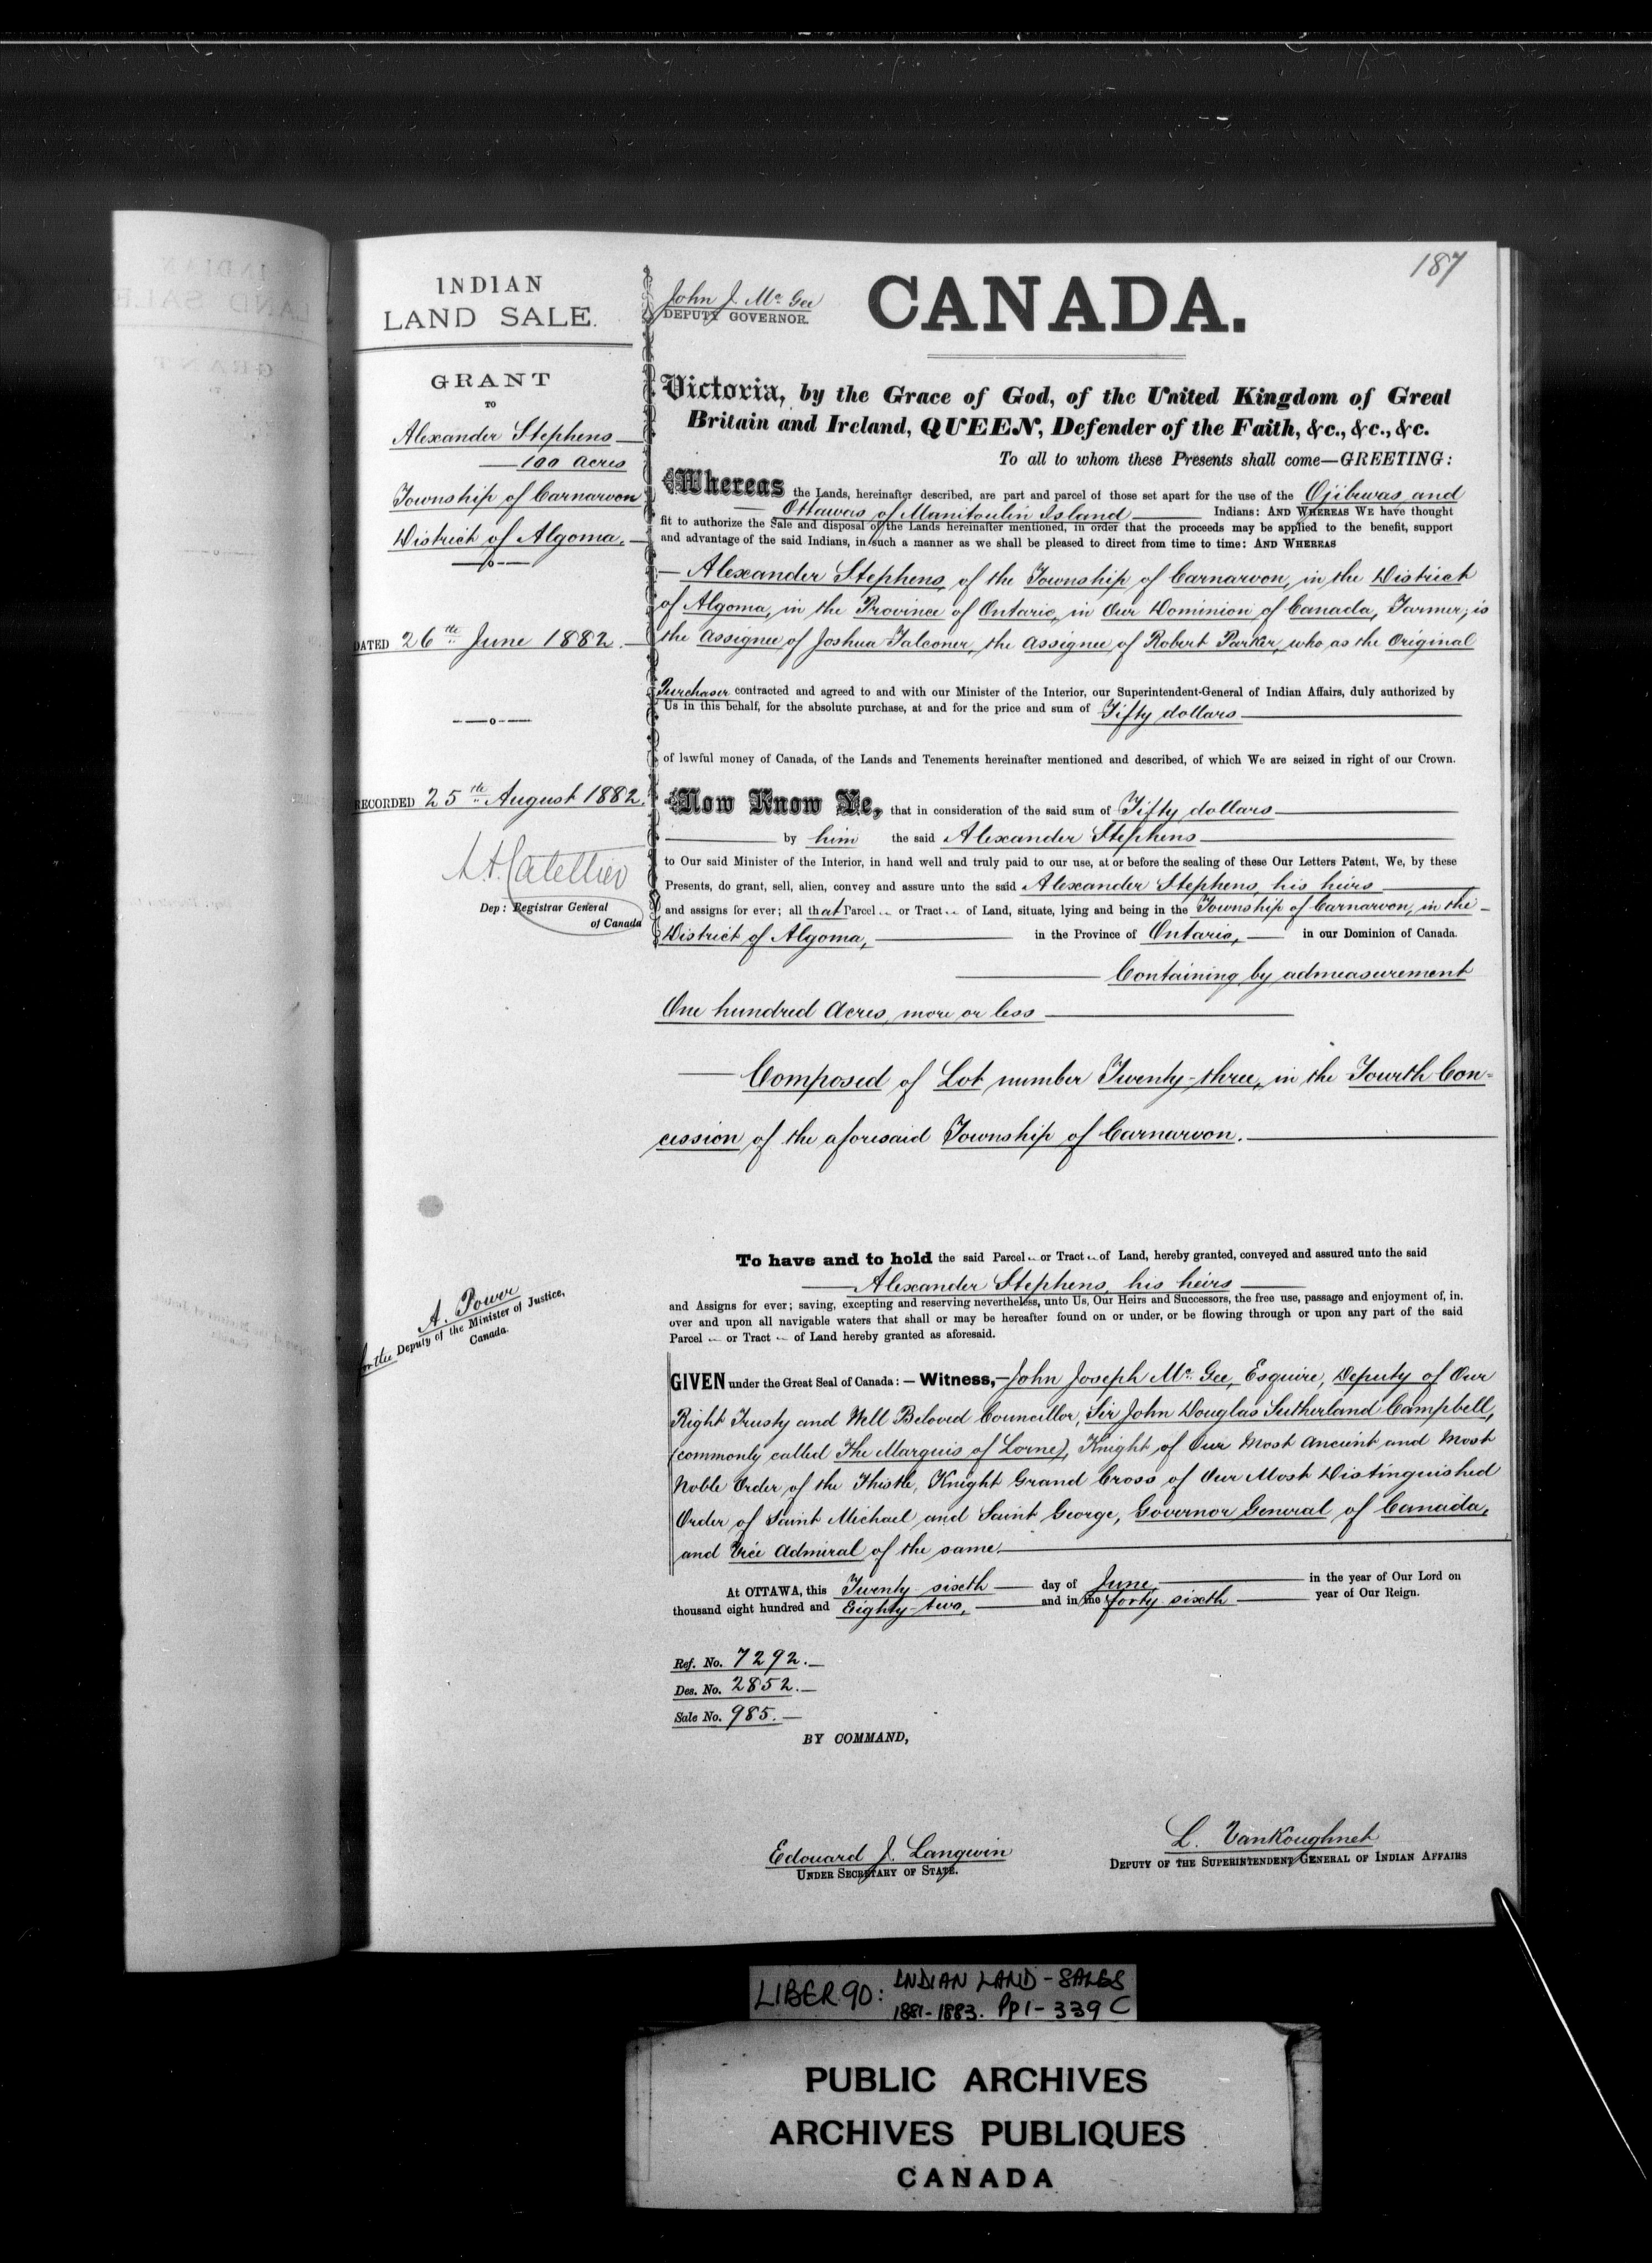 187
INDIAN
LAND SALE.
GRANT
TO
Alexander Stephens
100 Acres
Township of Carnarvon
District of Algoma.
DATED 26th June 1882.
RECORDED 25th August 1882.
Dep: Registrar General
of Canada
A. Power
for the Deputy of the Minister of Justice,
Canada.
John J. McGee
DEPUTY GOVERNOR.
CANADA.
Victoria, by the Grace of God, of the United Kingdom of Great
Britain and Ireland, QUEEN, Defender of the Faith, &c., &c., &c.
To all to whom these Presents shall come—GREETING:
Whereas the Lands, hereinafter described, are part and parcel of those set apart for the use of the Ojibewas and
Ottawas of Manitoulin Island Indians: AND WHEREAS WE have thought
fit to authorize the Sale and disposal of the Lands hereinafter mentioned, in order that the proceeds may be applied to the benefit, support
and advantage of the said Indians, in such a manner as we shall be pleased to direct from time to time: AND WHEREAS
— Alexander Stephens, of the Township of Carnarvon, in the District
of Algoma, in the Province of Ontario, in Our Dominion of Canada, Farmer, is
the Assignee of Joshua Falconer, the Assignee of Robert Parker, who as the Original
Purchaser contracted and agreed to and with our Minister of the Interior, our Superintendent-General of Indian Affairs, duly authorized by
Us in this behalf, for the absolute purchase, at and for the price and sum of Fifty dollars
of lawful money of Canada, of the Lands and Tenements hereinafter mentioned and described, of which We are seized in right of our Crown.
Now Know Ye, that in consideration of the said sum of Fifty dollars
by him the said Alexander Stephens
to Our said Minister of the Interior, in hand well and truly paid to our use, at or before the sealing of these Our Letters Patent, We, by these
Presents, do grant, sell, alien, convey and assure unto the said Alexander Stephens, his heirs
and assigns for ever; all that Parcel or Tract of Land, situate, lying and being in the Township of Carnarvon, in the
District of Algoma, in the Province of Ontario, in our Dominion of Canada.
Containing by admeasurement
One hundred Acres, more or less
Composed of Lot number Twenty-three, in the Fourth Con-
cession of the aforesaid Township of Carnarvon.
To have and to hold the said Parcel or Tract of Land, hereby granted, conveyed and assured unto the said
Alexander Stephens, his heirs
and Assigns for ever; saving, excepting and reserving nevertheless, unto Us, Our Heirs and Successors, the free use, passage and enjoyment of, in,
over and upon all navigable waters that shall or may be hereafter found on or under, or be flowing through or upon any part of the said
Parcel or Tract of Land hereby granted as aforesaid.
GIVEN under the Great Seal of Canada: — Witness,—John Joseph McGee, Esquire, Deputy of Our
Right Trusty and Well Beloved Councillor, Sir John Douglas Sutherland Campbell,
(commonly called The Marquis of Lorne), Knight of Our Most Ancient and Most
Noble Order of the Thistle, Knight Grand Cross of Our Most Distinguished
Order of Saint Michael and Saint George, Governor General of Canada,
and Vice Admiral of the same.
At OTTAWA, this Twenty-sixth day of June, in the year of Our Lord on
thousand eight hundred and Eighty-two, and in the forty-sixth year of Our Reign.
Ref. No. 7292.
Des. No. 2852.
Sale No. 985.
BY COMMAND,
Edouard J. Langevin
UNDER SECRETARY OF STATE.
L. VanKoughnet
DEPUTY OF THE SUPERINTENDENT GENERAL OF INDIAN AFFAIRS
LIBER 90: INDIAN LAND - SALES
1881-1883. Pp 1-339 C
PUBLIC ARCHIVES
ARCHIVES PUBLIQUES
CANADA